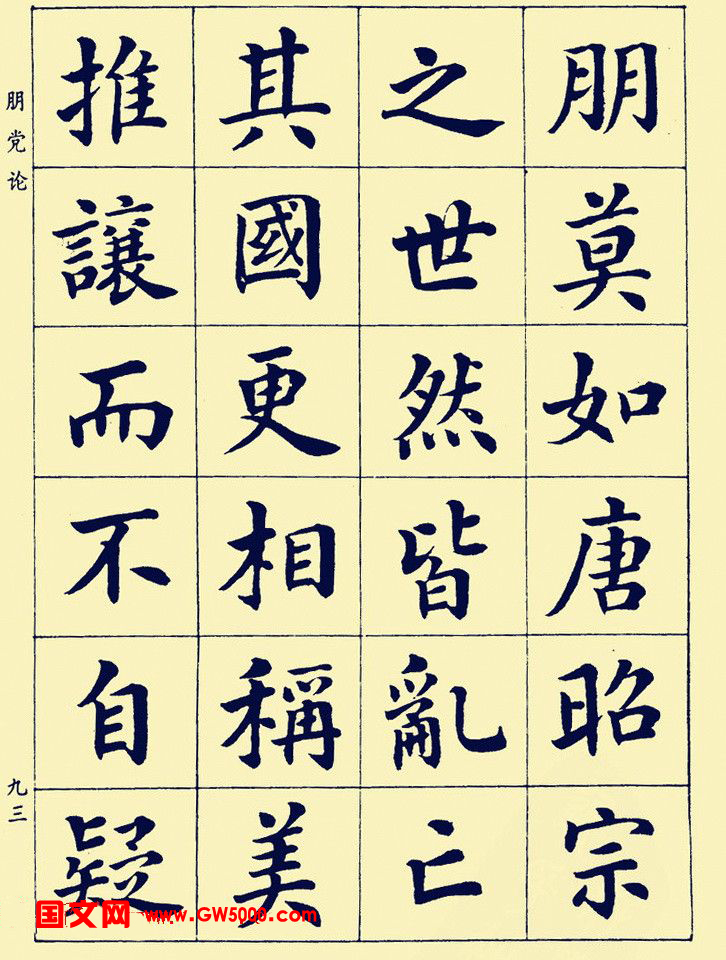 朋莫如唐昭宗
之世然皆亂亡
其國更相稱美
推讓而不自疑
朋党论
九三
国文网 www.GW5000.com